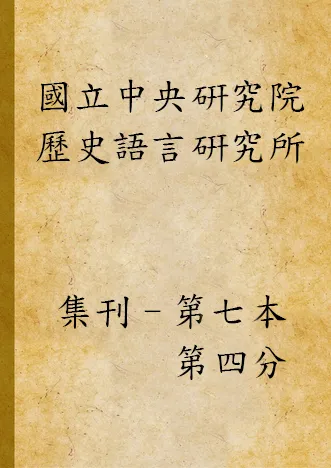 國立中央研究院
歷史語言研究所
集刊－第七本
第四分